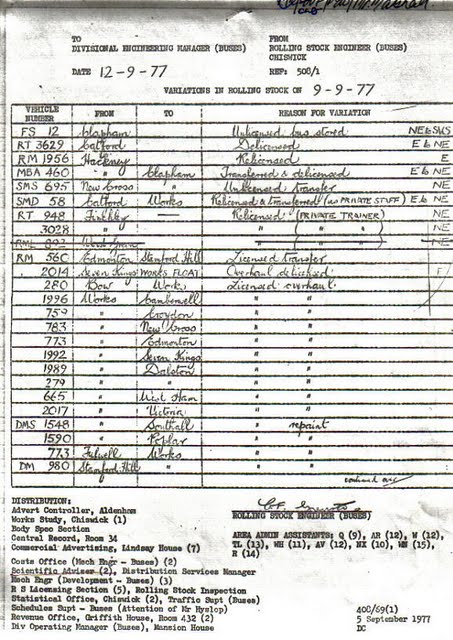 TO FROM
DIVISIONAL ENGINEERING MANAGER (BUSES) ROLLING STOCK ENGINEER (BUSES)
CHISWICK
DATE 12-9-77 REF: 508/1
VARIATIONS IN ROLLING STOCK ON 9-9-77
VEHICLE NUMBER FROM TO REASON FOR VARIATION
FS 12 Clapham Unlicensed bus stored NE to SUS
RT 3629 Catford Delicensed E to NE
RM 1956 Hackney Relicensed E
MBA 460 " Clapham Transferred & delicensed E to NE
SMS 695 New Cross " Unlicensed transfer NE
SMD 58 Catford Works Relicensed & transferred (as PRIVATE STUFF) E to NE
RT 948 Finchley — Relicensed (PRIVATE TRAINER) NE
3028 " — " ( " " ) NE
RML 893 Wood Green — " ( " " ) NE
RM 560 Edmonton Stamford Hill Licensed transfer
2014 Seven Kings WORKS FLOAT Overhaul delicensed
280 Bow Works Licensed overhaul
1996 Works Camberwell " "
759 " Croydon " "
783 " New Cross " "
773 " Edmonton " "
1992 " Seven Kings " "
1989 " Dalston " "
279 " " " "
665 " West Ham " "
2017 " Victoria " "
DMS 1548 " Southall " repaint
1590 " Poplar " "
773 Fulwell Works " "
DM 980 Stamford Hill " " "
continued over
DISTRIBUTION:
Advert Controller, Aldenham
Works Study, Chiswick (1)
Body Spec Section
Central Record, Room 34
Commercial Advertising, Lindsay House (7)
ROLLING STOCK ENGINEER (BUSES)
AREA ADMIN ASSISTANTS: Q (9), AR (12), W (12),
TL (13), WH (11), AV (12), NX (10), WN (15),
R (14)
Costs Office (Mech Engr - Buses) (2)
Scientific Adviser (2), Distribution Services Manager
Mech Engr (Development - Buses) (3)
R S Licensing Section (5), Rolling Stock Inspection
Statistical Office, Chiswick (2), Traffic Supt (Buses)
Schedules Supt - Buses (Attention of Mr Hyslop)
Revenue Office, Griffith House, Room 432 (2)
Div Operating Manager (Buses), Mansion House
408/69(1)
5 September 1977
DC